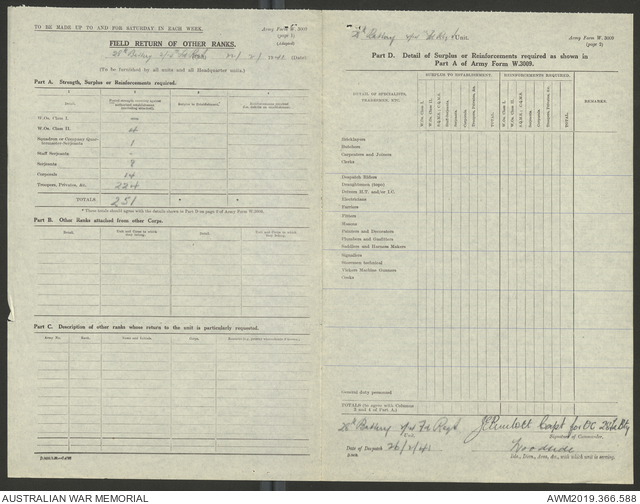 TO BE MADE UP TO AND FOR SATURDAY IN EACH WEEK.
Army Form W. 3009
(page 1)
(Adapted)
FIELD RETURN OF OTHER RANKS.
(Date)
(To be furnished by all units and all Headquarter units.)
Part A. Strength, Surplus or Reinforcements required.
1
2
3
4
Detail.
W.Os. Class I.
W.Os. Class II. 4
Squadron or Company Quar-
termaster-Serjeants 1
Staff Serjeants -
Serjeants 8
Corporals 14
Troopers, Privates, &c. 224
TOTALS 251
* These totals should agree with the details shown in Part D on page 2 of Army Form W.3009.
Part B. Other Ranks attached from other Corps.
Detail.
Unit and Corps to which
they belong.
Detail.
Unit and Corps to which
they belong.
Part C. Description of other ranks whose return to the unit is particularly requested.
Army No.
Rank.
Name and Initials.
Corps.
Unit.
Army Form W. 3009
(page 2)
Part D. Detail of Surplus or Reinforcements required as shown in
Part A of Army Form W.3009.
SURPLUS TO ESTABLISHMENT.
REINFORCEMENTS REQUIRED.
DETAIL OF SPECIALISTS,
TRADESMEN, ETC.
W.Os. Class I.
W.Os. Class II.
Serjeants
Corporals
Troopers, Privates, &c.
TOTAL
W.Os. Class I.
W.Os. Class II.
Serjeants
Corporals
Troopers, Privates, &c.
TOTAL
REMARKS
Bricklayers
Butchers
Carpenters and Joiners
Clerks
Despatch Riders
Draughtsmen (topo)
Drivers H.T. and/or I.C.
Electricians
Farriers
Fitters
Masons
Painters and Decorators
Plumbers and Gasfitters
Saddlers and Harness Makers
Signallers
Storemen technical
Vickers Machine Gunners
Cooks
General duty personnel
TOTALS (to agree with Columns
3 and 4 of Part A.)
28th Battery
Unit.
Capt for OC
Signature of Commander.
Date of Despatch 26/2/41
Woodside
Bde., Divn., Area, &c., with which unit is serving.
AUSTRALIAN WAR MEMORIAL
AWM2019.366.588